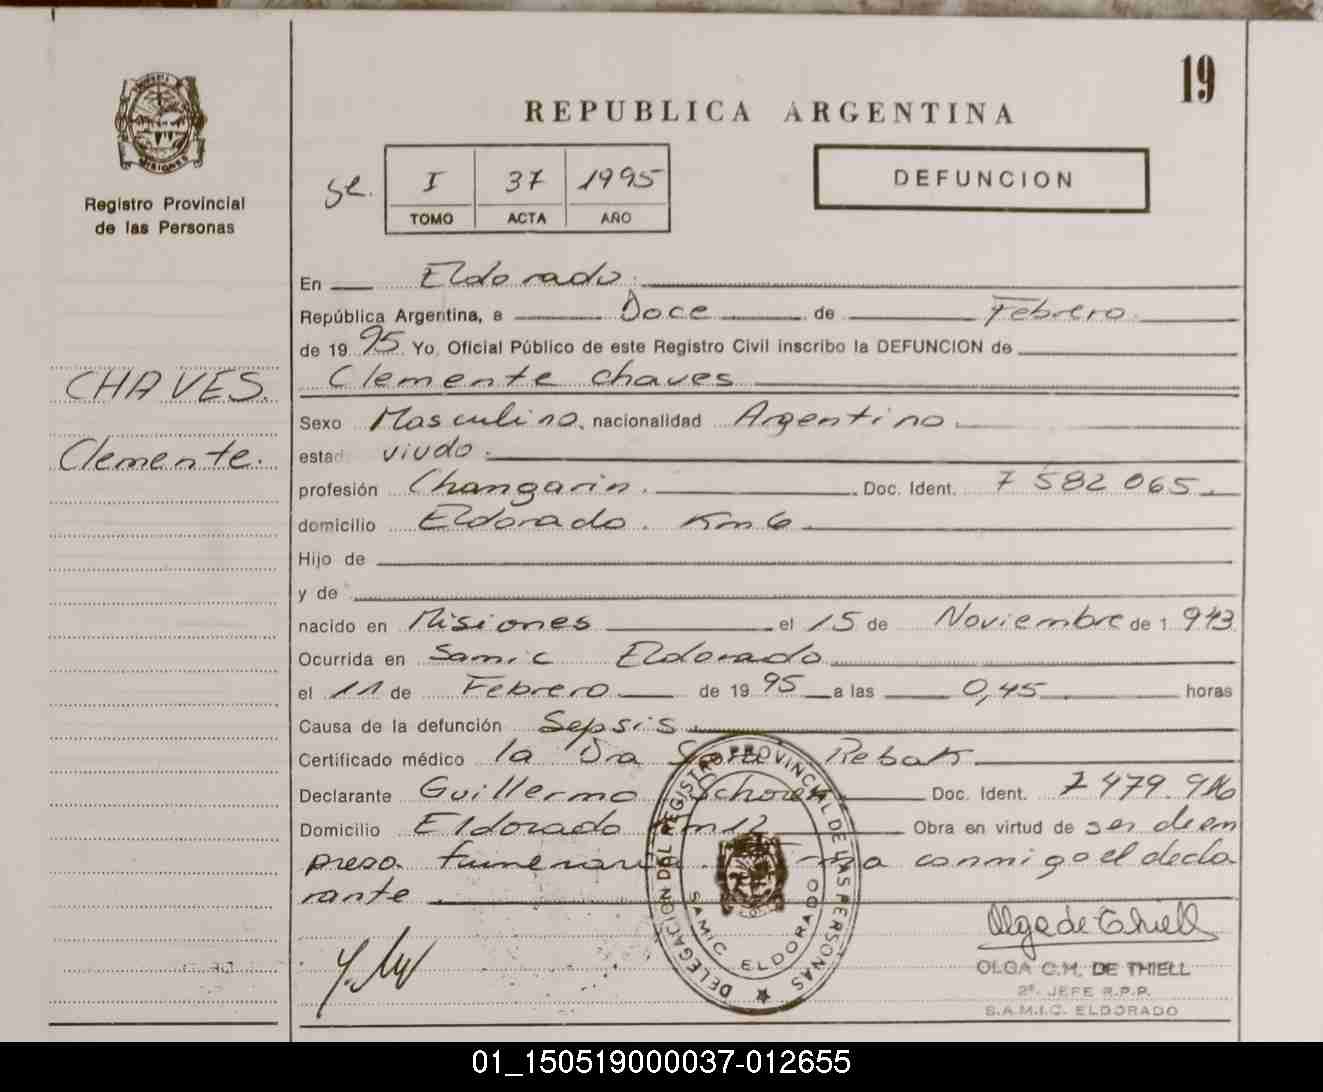 19
REPUBLICA ARGENTINA
MISIONES
Registro Provincial
de las Personas
I 37 1995
TOMO ACTA AÑO
DEFUNCION
CHAVES.
Clemente.
En Eldorado.
República Argentina, a Doce de Febrero.
de 1995. Yo, Oficial Público de este Registro Civil inscribo la DEFUNCION de
Clemente Chaves
Sexo Masculino, nacionalidad Argentino.
estad viudo.
profesión Changarin. Doc. Ident. 7 582 065.
domicilio Eldorado. Km 6
Hijo de
y de
nacido en Misiones el 15 de Noviembre de 1 943
Ocurrida en Samic Eldorado
el 11 de Febrero de 1995 a las 0,45 horas
Causa de la defunción Sepsis.
Certificado médico la Dra Rebak
Declarante Guillermo Schoren Doc. Ident. 7 479.916
Domicilio Eldorado Km 12 Obra en virtud de ser de em
presa funeraria. conmigo el decla
rante
DELEGACION DEL REGISTRO PROVINCIAL DE LAS PERSONAS
SAMIC ELDORADO
Olga de Thiell
OLGA C.M. DE THIELL
2º. JEFE R.P.P.
S.A.M.I.C. ELDORADO
01_150519000037-012655